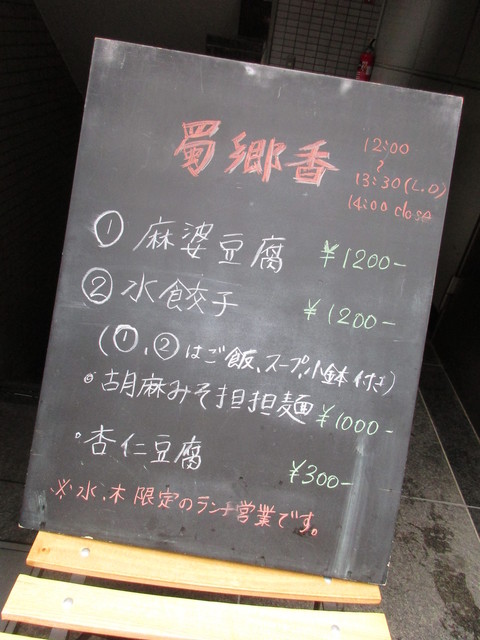 蜀郷香
12:00
~
13:30(L.O)
14:00 close
① 麻婆豆腐 ¥1200-
② 水餃子 ¥1200-
(①、②はご飯、スープ、小鉢付き)
◦胡麻みそ担担麺 ¥1000-
◦杏仁豆腐 ¥300-
※水、木限定のランチ営業です。